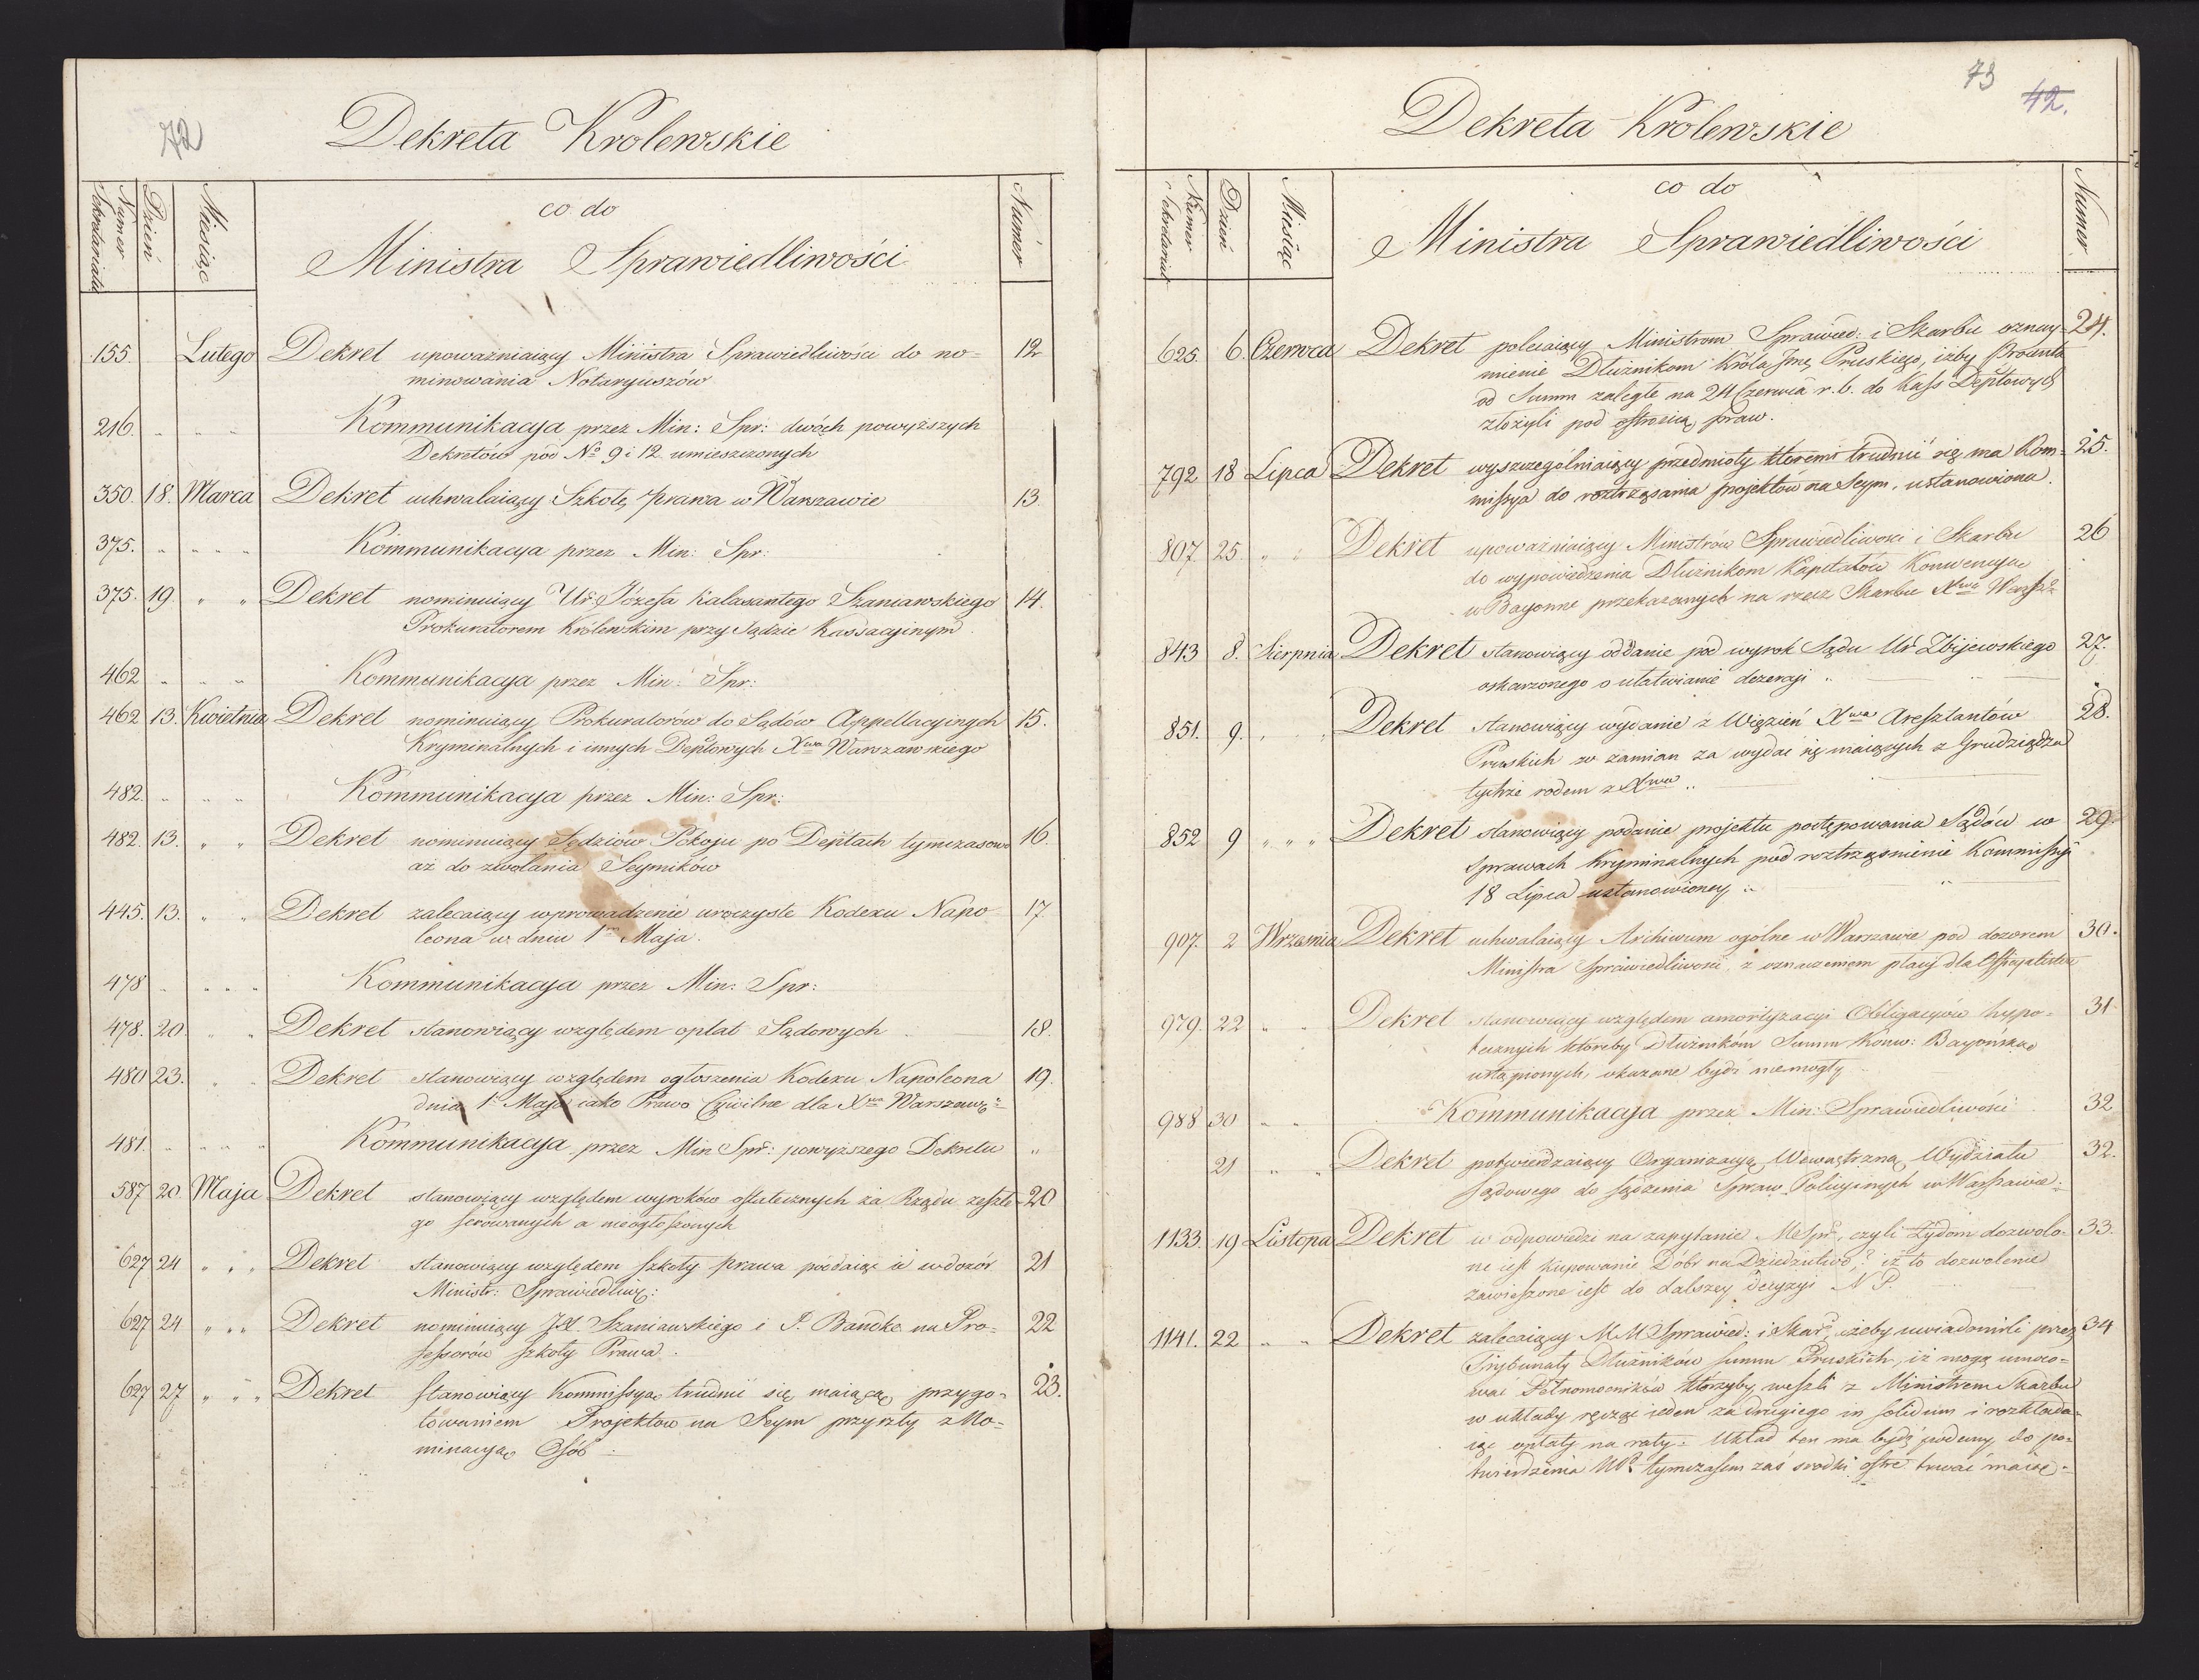 72
Dekreta Krolewskie
Numer Sekretariatu
Dzień
Miesiąc
co do
Ministra Sprawiedliwości
Numer
155. Lutego Dekret upoważniaiący Ministra Sprawiedliwości do no= 12
minowania Notaryuszów
216. " " " Kommunikacya przez Min: Spr: dwóch powyższych
Dekretów pod No 9 i 12 umieszczonych
350. 18. Marca Dekret uchwalaiący Szkołę prawa w Warszawie 13.
375. " " " " Kommunikacya przez Min: Spr:
375. 19. " " Dekret nominuiący Ur. Józefa Kalasantego Szaniawskiego 14.
Prokuratorem Królewskim przy Sądzie Kassacyinym
462 " " " Kommunikacya przez Min: Spr:
462 13. Kwietnia Dekret nominuiący Prokuratorów do Sądów Appellacyinych 15.
Kryminalnych i innych Deptowych Xwa Warszawskiego
482. " " " Kommunikacya przez Min: Spr:
482. 13. " " Dekret nominuiący Sędziów Pokoju po Deptach tymczasowo 16.
aż do zwołania Seymików
445. 13. " " Dekret zalecaiący wprowadzenie uroczyste Kodexu Napo 17
leona w dniu 1m Maja.
478 " " " " Kommunikacya przez Min: Spr:
478. 20. " " Dekret stanowiący względem opłat Sądowych 18.
480 23. " " Dekret stanowiący względem ogłoszenia Kodexu Napoleona 19.
dnia 1o Maja iako Prawo Cywilne dla Xwa Warszawo:
481. " " " " Kommunikacya przez Min Spr: powyższego Dekretu "
587 20. Maja Dekret stanowiący względem wyroków ostatecznych za Rządu zeszłe= 20
go ferowanych a nieogłoszonych
627 24 " " " Dekret stanowiący względem szkoły prawa poddaiąc ią w dozór 21
Ministr: Sprawiedliw:
627 24 " " " Dekret nominuiący JX Szaniawskiego i P. Bandke na Pro= 22
fessorów szkoły Prawa.
627 27 " " " Dekret stanowiący Kommissyą trudnić się maiącą przygo= 23.
towaniem Projektow na Seym przyszły z No=
minacyą Osób
73
42.
Dekreta Królewskie
Numer Sekretariat
Dzień
Miesiąc
co do
Ministra Sprawiedliwości
Numer
625. 6. Czerwca Dekret polecaiący Ministrom Sprawied: i Skarbu oznay= 24.
mienie Dłużnikom Króla Jmę Pruskiego, iżby Procenta
od Summ zaległe na 24 Czerwca r. b. do Kass Deptowych
złożyli pod ostrością praw.
792 18 Lipca Dekret wyszczególniaiący przedmioty któremi trudnić się ma Kom= 25.
missya do roztrząsania projektów na Seym, ustanowiona.
807 25. " " Dekret upoważniaiący Ministrów Sprawiedliwości i Skarbu 26
do wypowiedzenia Dłużnikom Kapitałów Konwencyą
w Bayonne przekazanych na rzecz Skarbu Xwa Warsz:
843 8. Sierpnia Dekret stanowiący oddanie pod wyrok Sądu Ur Zbijewskiego 27.
oskarzonego o ułatwianie dezercyi
851. 9. " " Dekret stanowiący wydanie z Więzień Xwa Aresztantów 28.
Pruskich w zamian za wydać się maiących z Grudziądza
tychże rodem z Xwa
852 9 " " " Dekret stanowiący podanie projektu postępowania Sądów w 29.
sprawach Kryminalnych pod roztrząśnienie Kommissyi
18 Lipca ustanowioney
907. 2 Września Dekret uchwalaiący Archiwum ogólne w Warszawie pod dozorem 30.
Ministra Sprawiedliwości, z oznaczeniem płacy dla Officyalistów
979. 22 " " Dekret stanowiący względem amortyzacyi Obligacyów hypo= 31
tecznych któreby Dłużników Summ Konw: Bayońską
ustąpionych, okazane bydź niemogły
988 30 " " Kommunikacya przez Min: Sprawiedliwości 32
21 " " Dekret potwierdzaiący Organizacyą Wewnętrzną Wydziału 32.
sądowego do sądzenia Spraw Policyinych w Warszawie
1133. 19 Listopa Dekret w odpowiedzi na zapytanie MSpr., czyli Żydom dozwolo= 33.
ne iest kupowanie Dóbr na Dziedzictwo? iż to dozwolenie
zawieszone iest do dalszey decyzyi N P.
1141. 22 " " Dekret zalecaiący MM Sprawied: i Skar:, ażeby uwiadomili przez 34
Trybunały Dłużników summ Pruskich, iż mogą umoco=
wać Pełnomocników którzyby weszli z Ministrem Skarbu
w układy ręcząc ieden za drugiego in solidum i rozkłada=
iąc opłaty na raty. Układ ten ma bydź podany do po=
twierdzenia NP. tymczasem zaś srodki ostre trwać maią